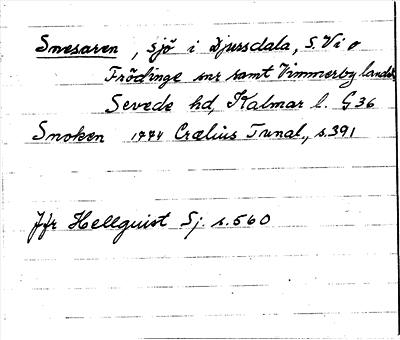 Snesaren, Sjö i Djursdala, S. Vi o
Frödinge snr samt Vimmerby landsk
Sevede hd, Kalmar l. G 36
Snoken 1774 Crælius Tunal., s. 391
Jfr Hellquist Sj. s. 560